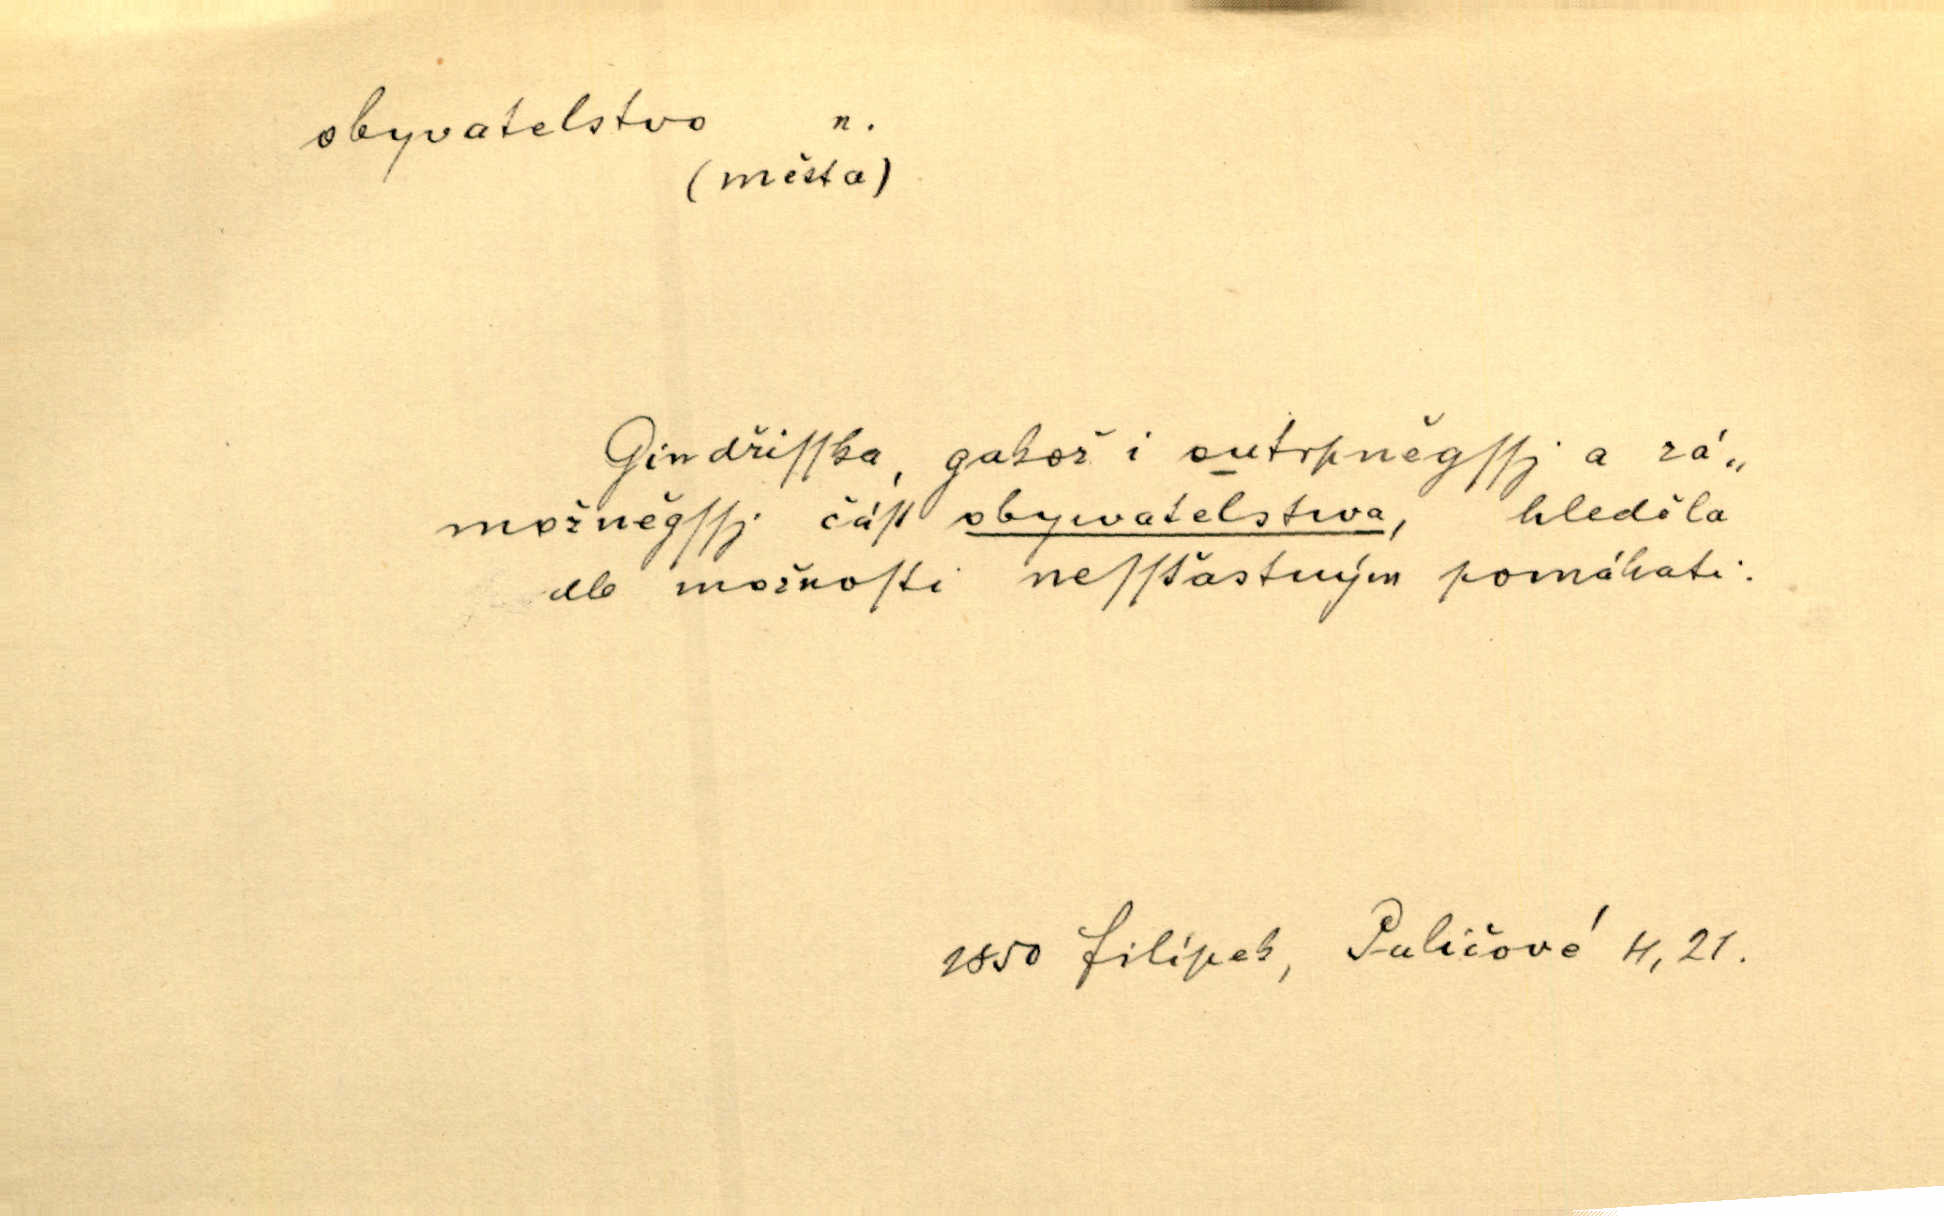 obyvatelstvo n.
(města)
Gindřiſſka, gakož i outrpněgſſj a zá„
možněgſſj čáſt obywatelstwa, hleděla
dle možnoſti neſſťastným pomáhati.
1850 Filípek, Puličové 4, 21.